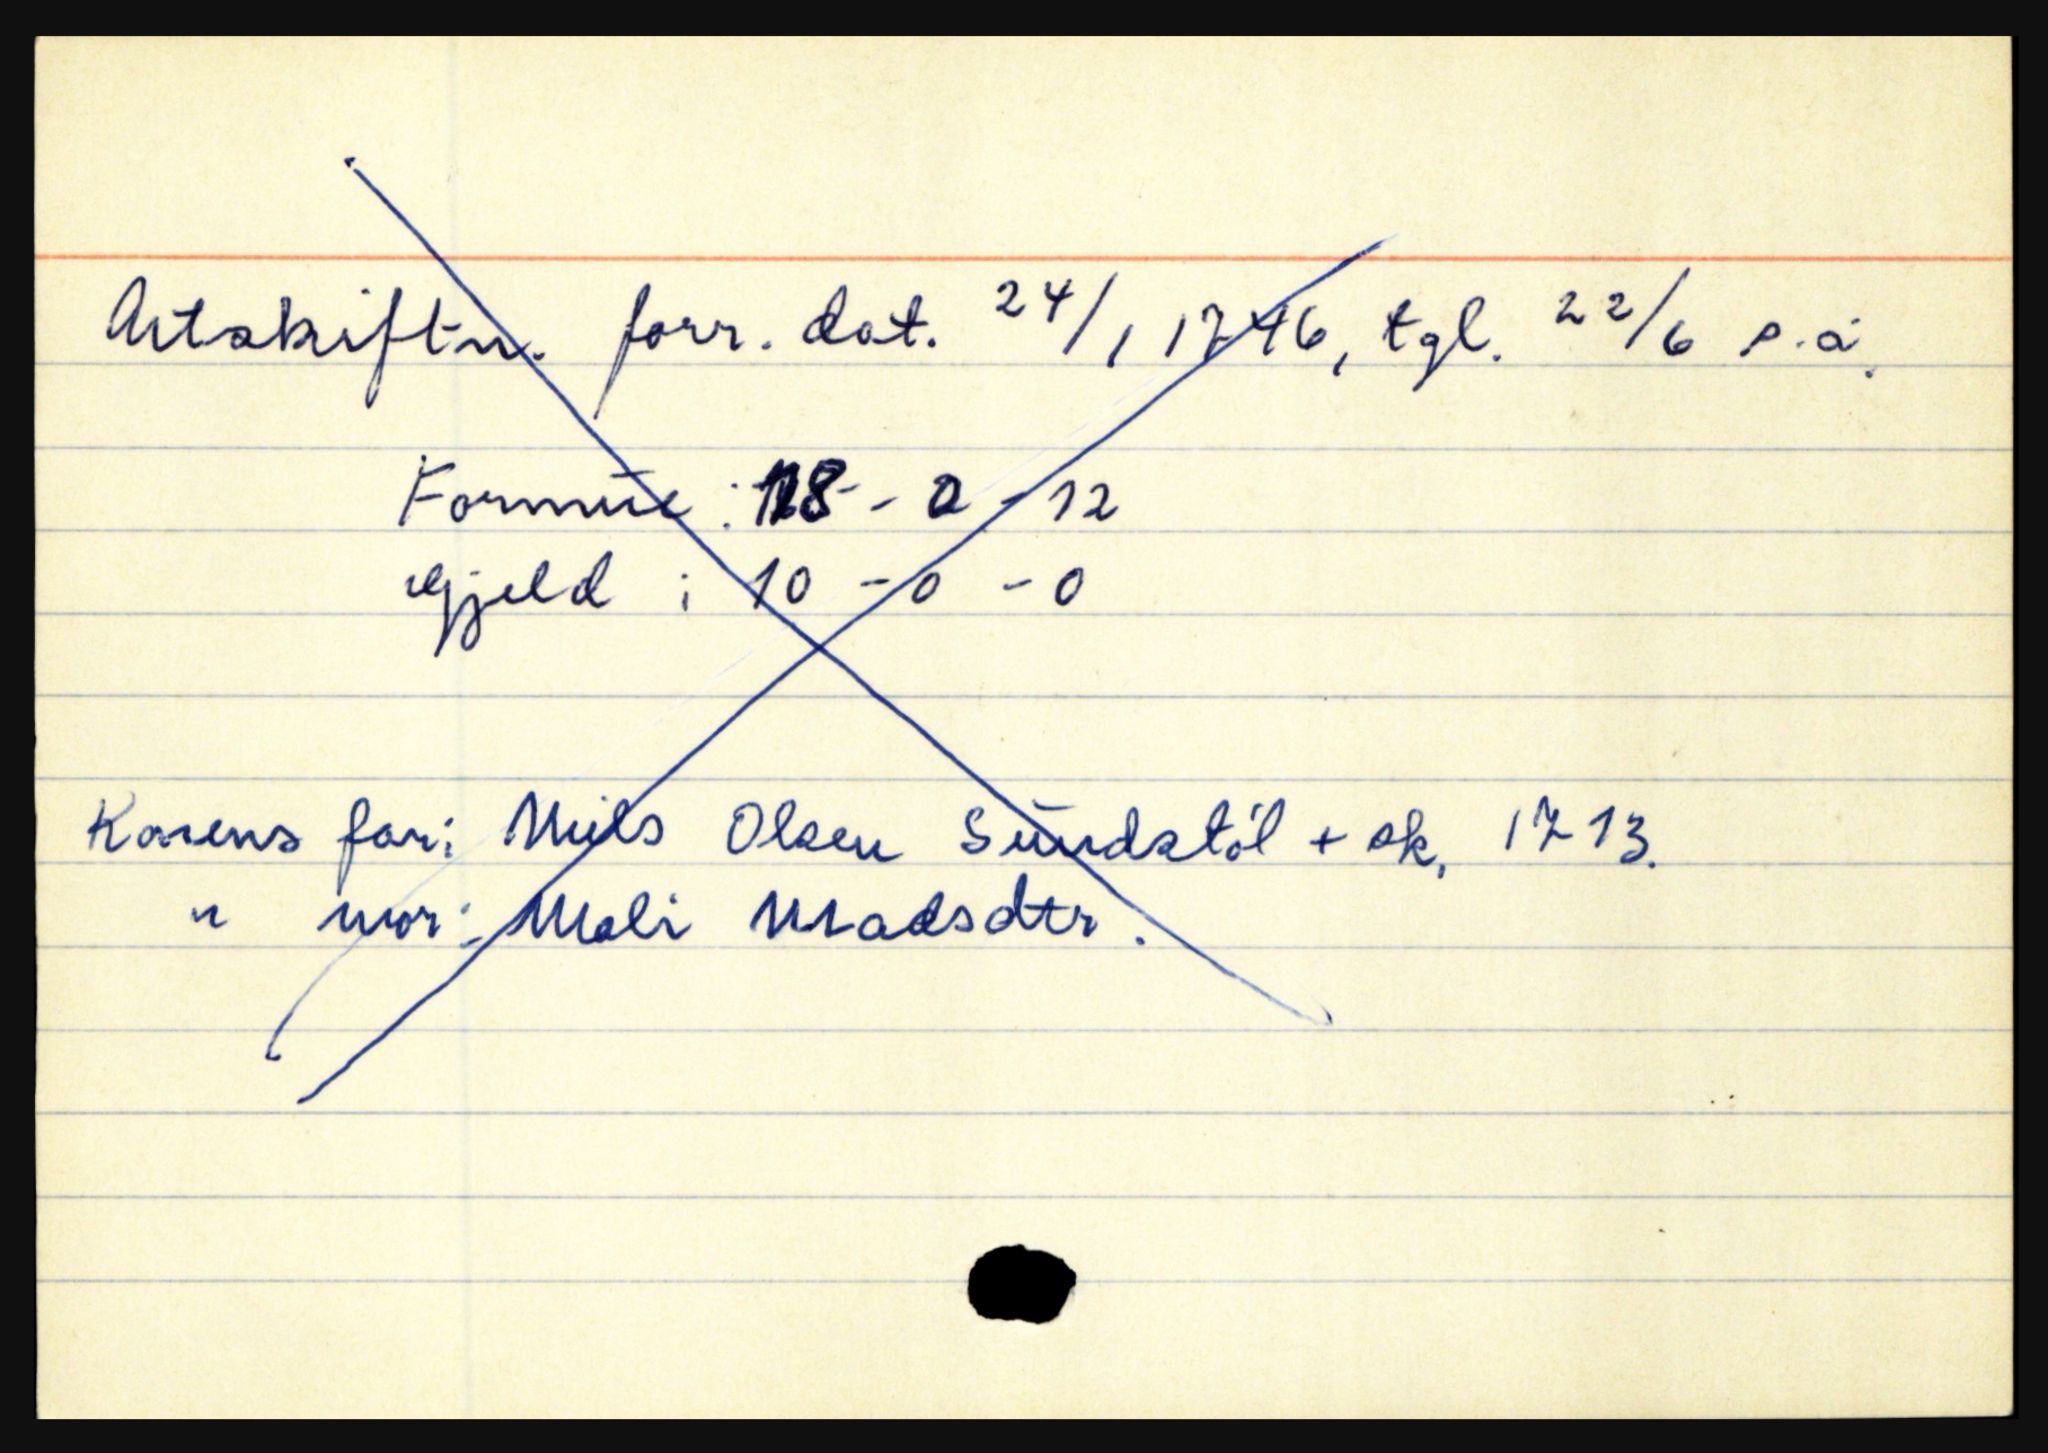 Utskiftn. forr. dat. 24/1 1746, tgl. 22/6 s.å.
Formue : 118 - 2 - 12
Gjeld : 10 - 0 - 0
Karens far: Nils Olsen Sundstöl + sk. 1713.
" mor: Mali Madsdtr.